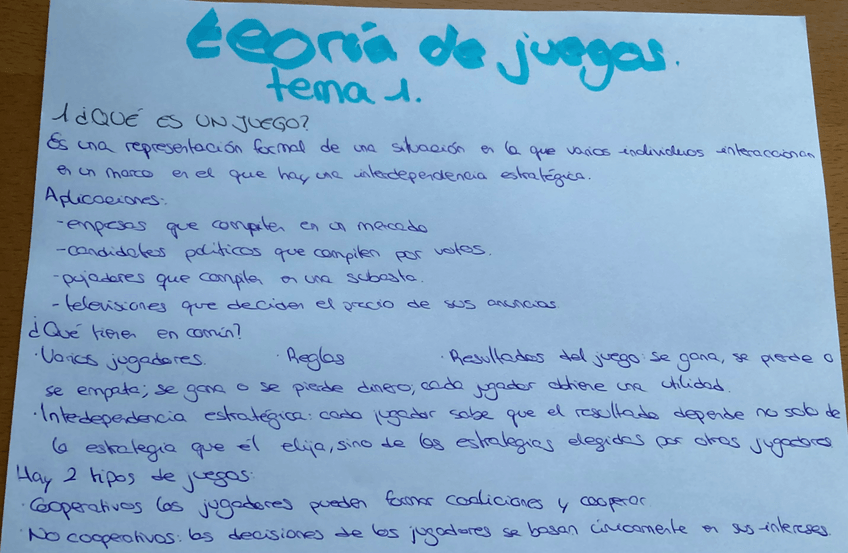 teoría de juegos.
tema 1.
1 ¿QUÉ ES UN JUEGO?
Es una representación formal de una situación en la que varios individuos interaccionan
en un marco en el que hay una interdependencia estratégica.
Aplicaciones:
-empresas que compiten en un mercado
-candidatos políticos que compiten por votos.
-pujadores que compiten en una subasta.
-televisiones que deciden el precio de sus anuncios
¿Qué tienen en común?
·Varios jugadores. ·Reglas ·Resultados del juego: se gana, se pierde o
se empata; se gana o se pierde dinero; cada jugador obtiene una utilidad.
·Intedependencia estratégica: cada jugador sabe que el resultado depende no solo de
la estrategia que él elija, sino de las estrategias elegidas por otros jugadores
Hay 2 tipos de juegos:
·Cooperativos los jugadores pueden formar coaliciones y cooperar.
·No cooperativos: las decisiones de los jugadores se basan únicamente en sus intereses.